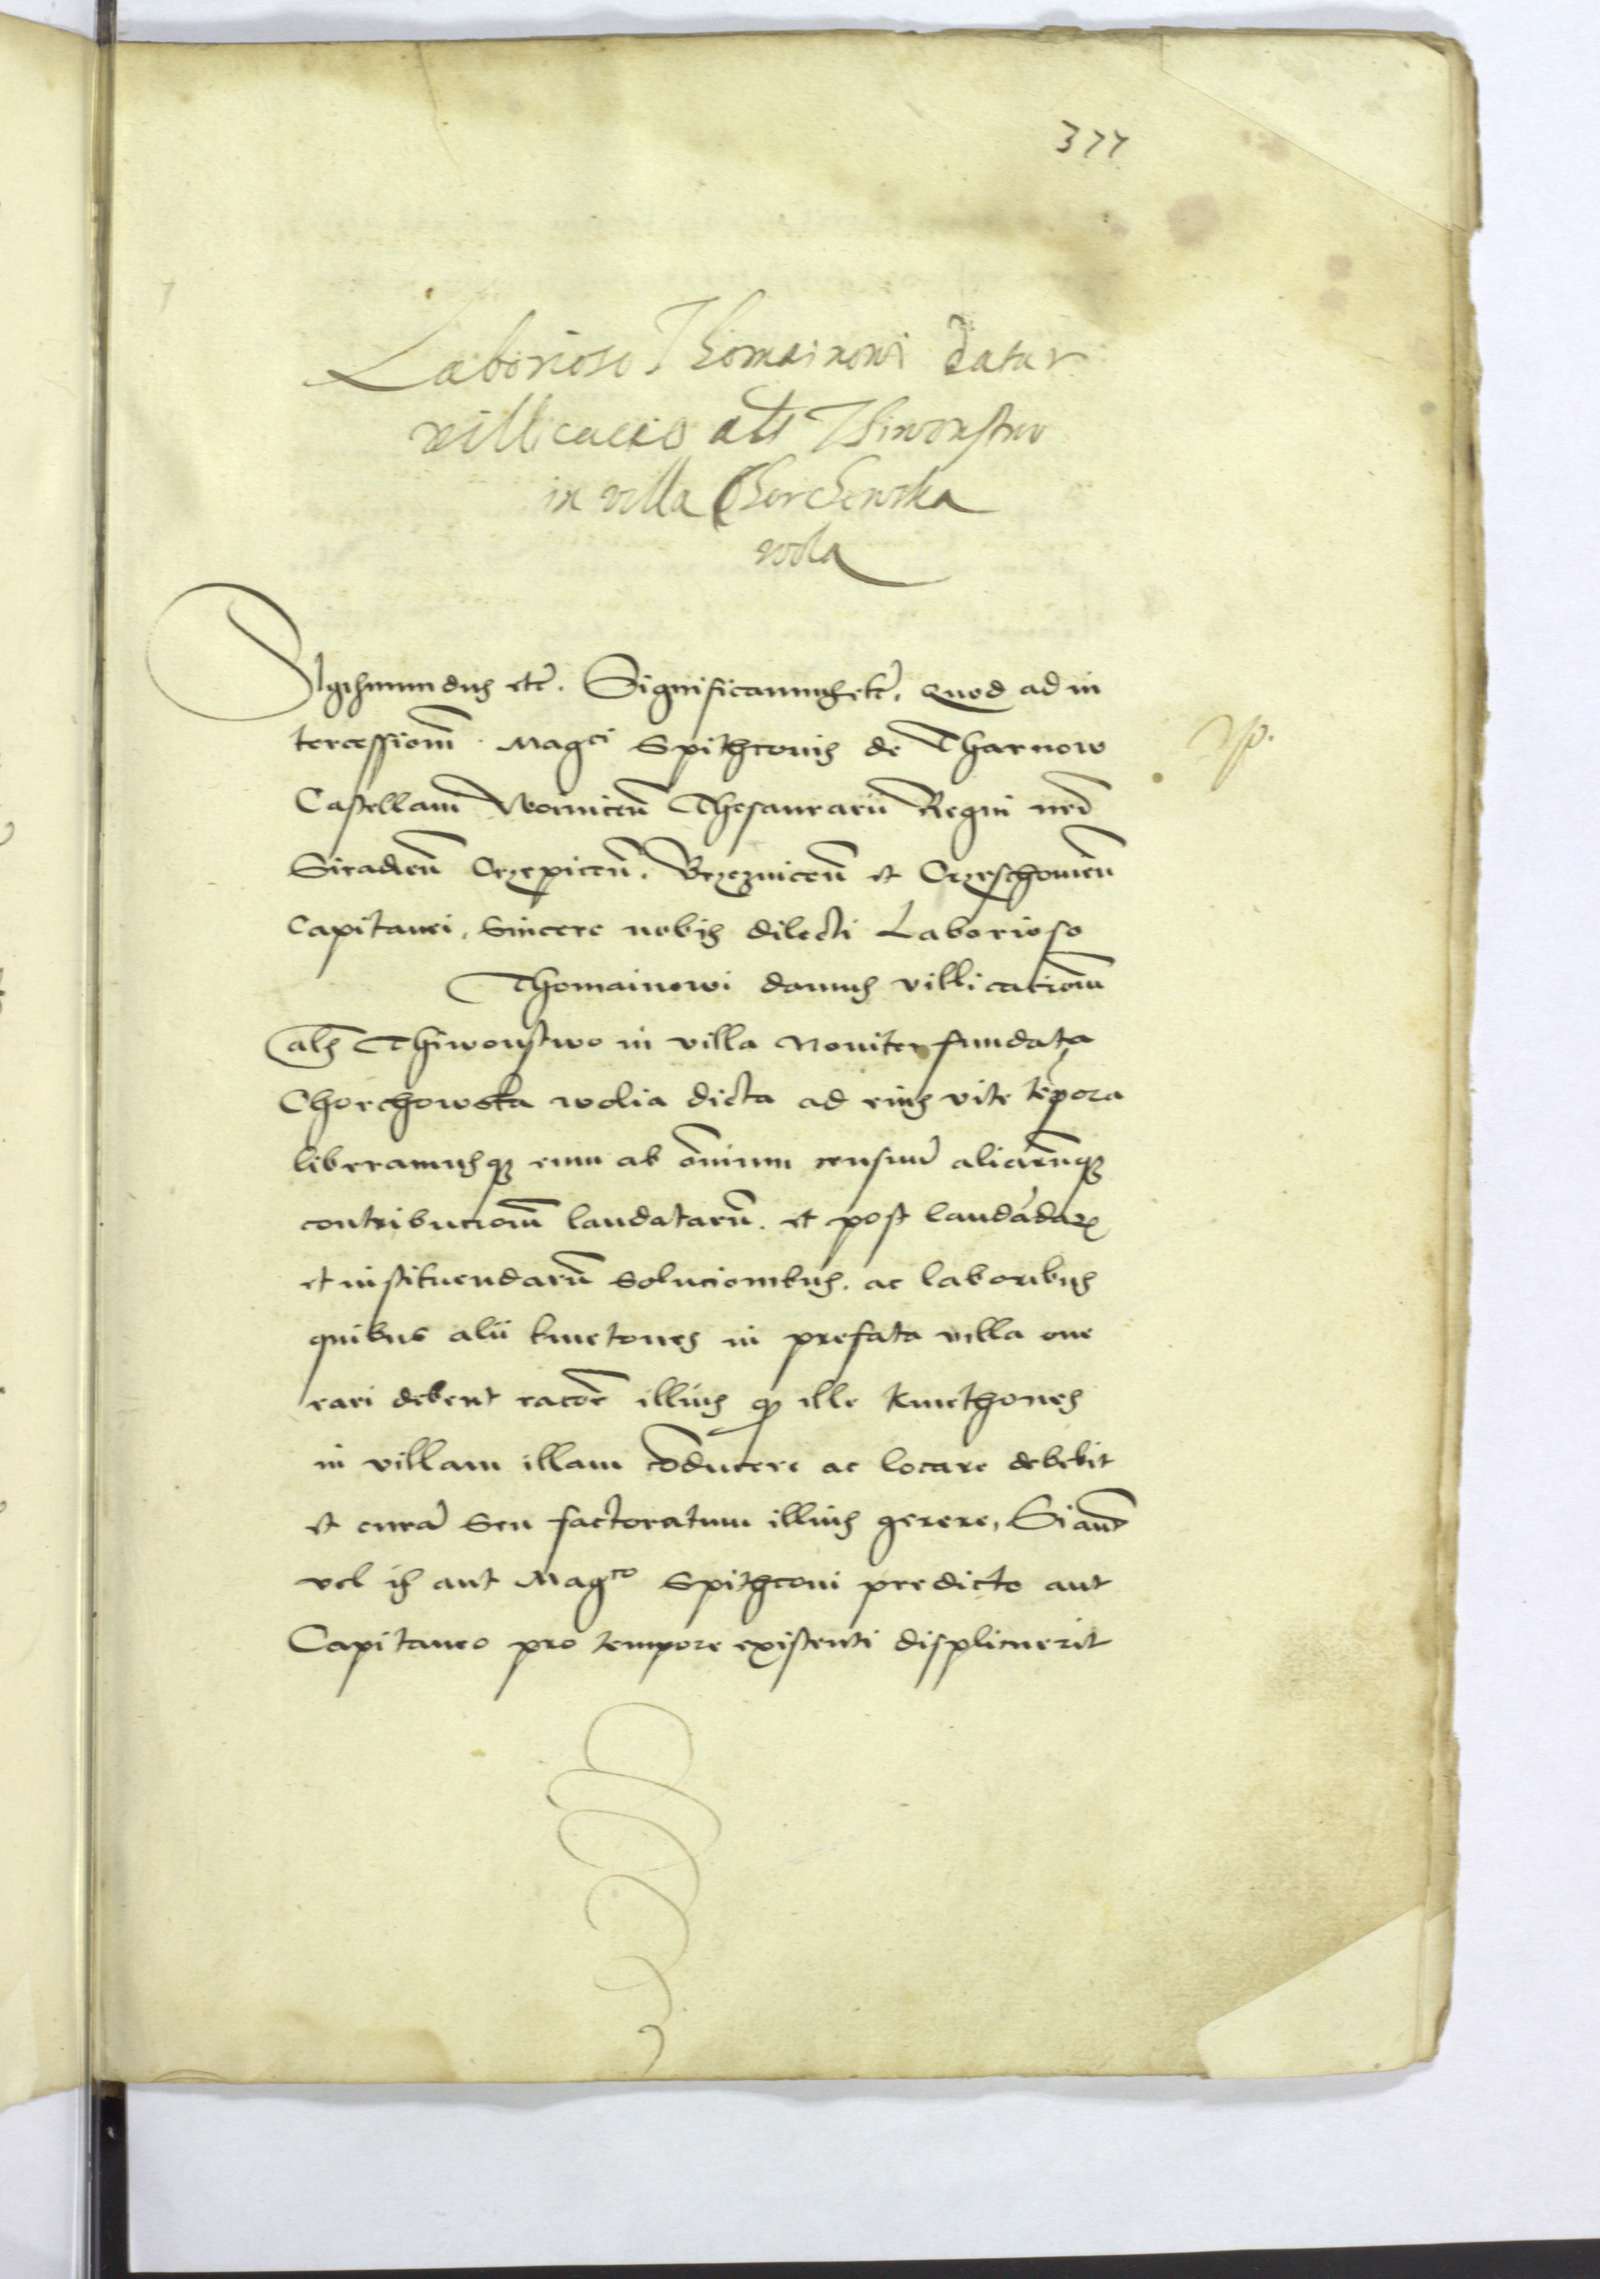 377
Laborioso Thomainowi datur
villicacio als Thiwonstwo
in villa Chorchowska
vola
Sigismundus etc. Significamus etc. Quod ad in
tercessionem Magci Spithconis de Tharnow
Castellani Woinicen Thesaurarii Regni nri
Siradien Crzepicen. Brzeznicen et Crzeschowien
Capitanei, Sincere nobis dilecti Laborioso
Thomainowi damus villicationem
als Thiwonstwo in villa Noviter fundata
Chorchowska wolia dicta ad eius vite tepora
liberamusq eum ab omnium censuum aliarumq
contribucionum laudatarum. et post laudadarum
et instituendarum Solucionibus. ac laboribus
quibus alii kmetones in prefata villa one
rari debent racone illius q ille kmethones
in villam illam conducere ac locare debebit
et cura Seu factoratum illius gerere, Si aut
vel is aut Magco Spithconi predicto aut
Capitaneo pro tempore existenti displicuerit